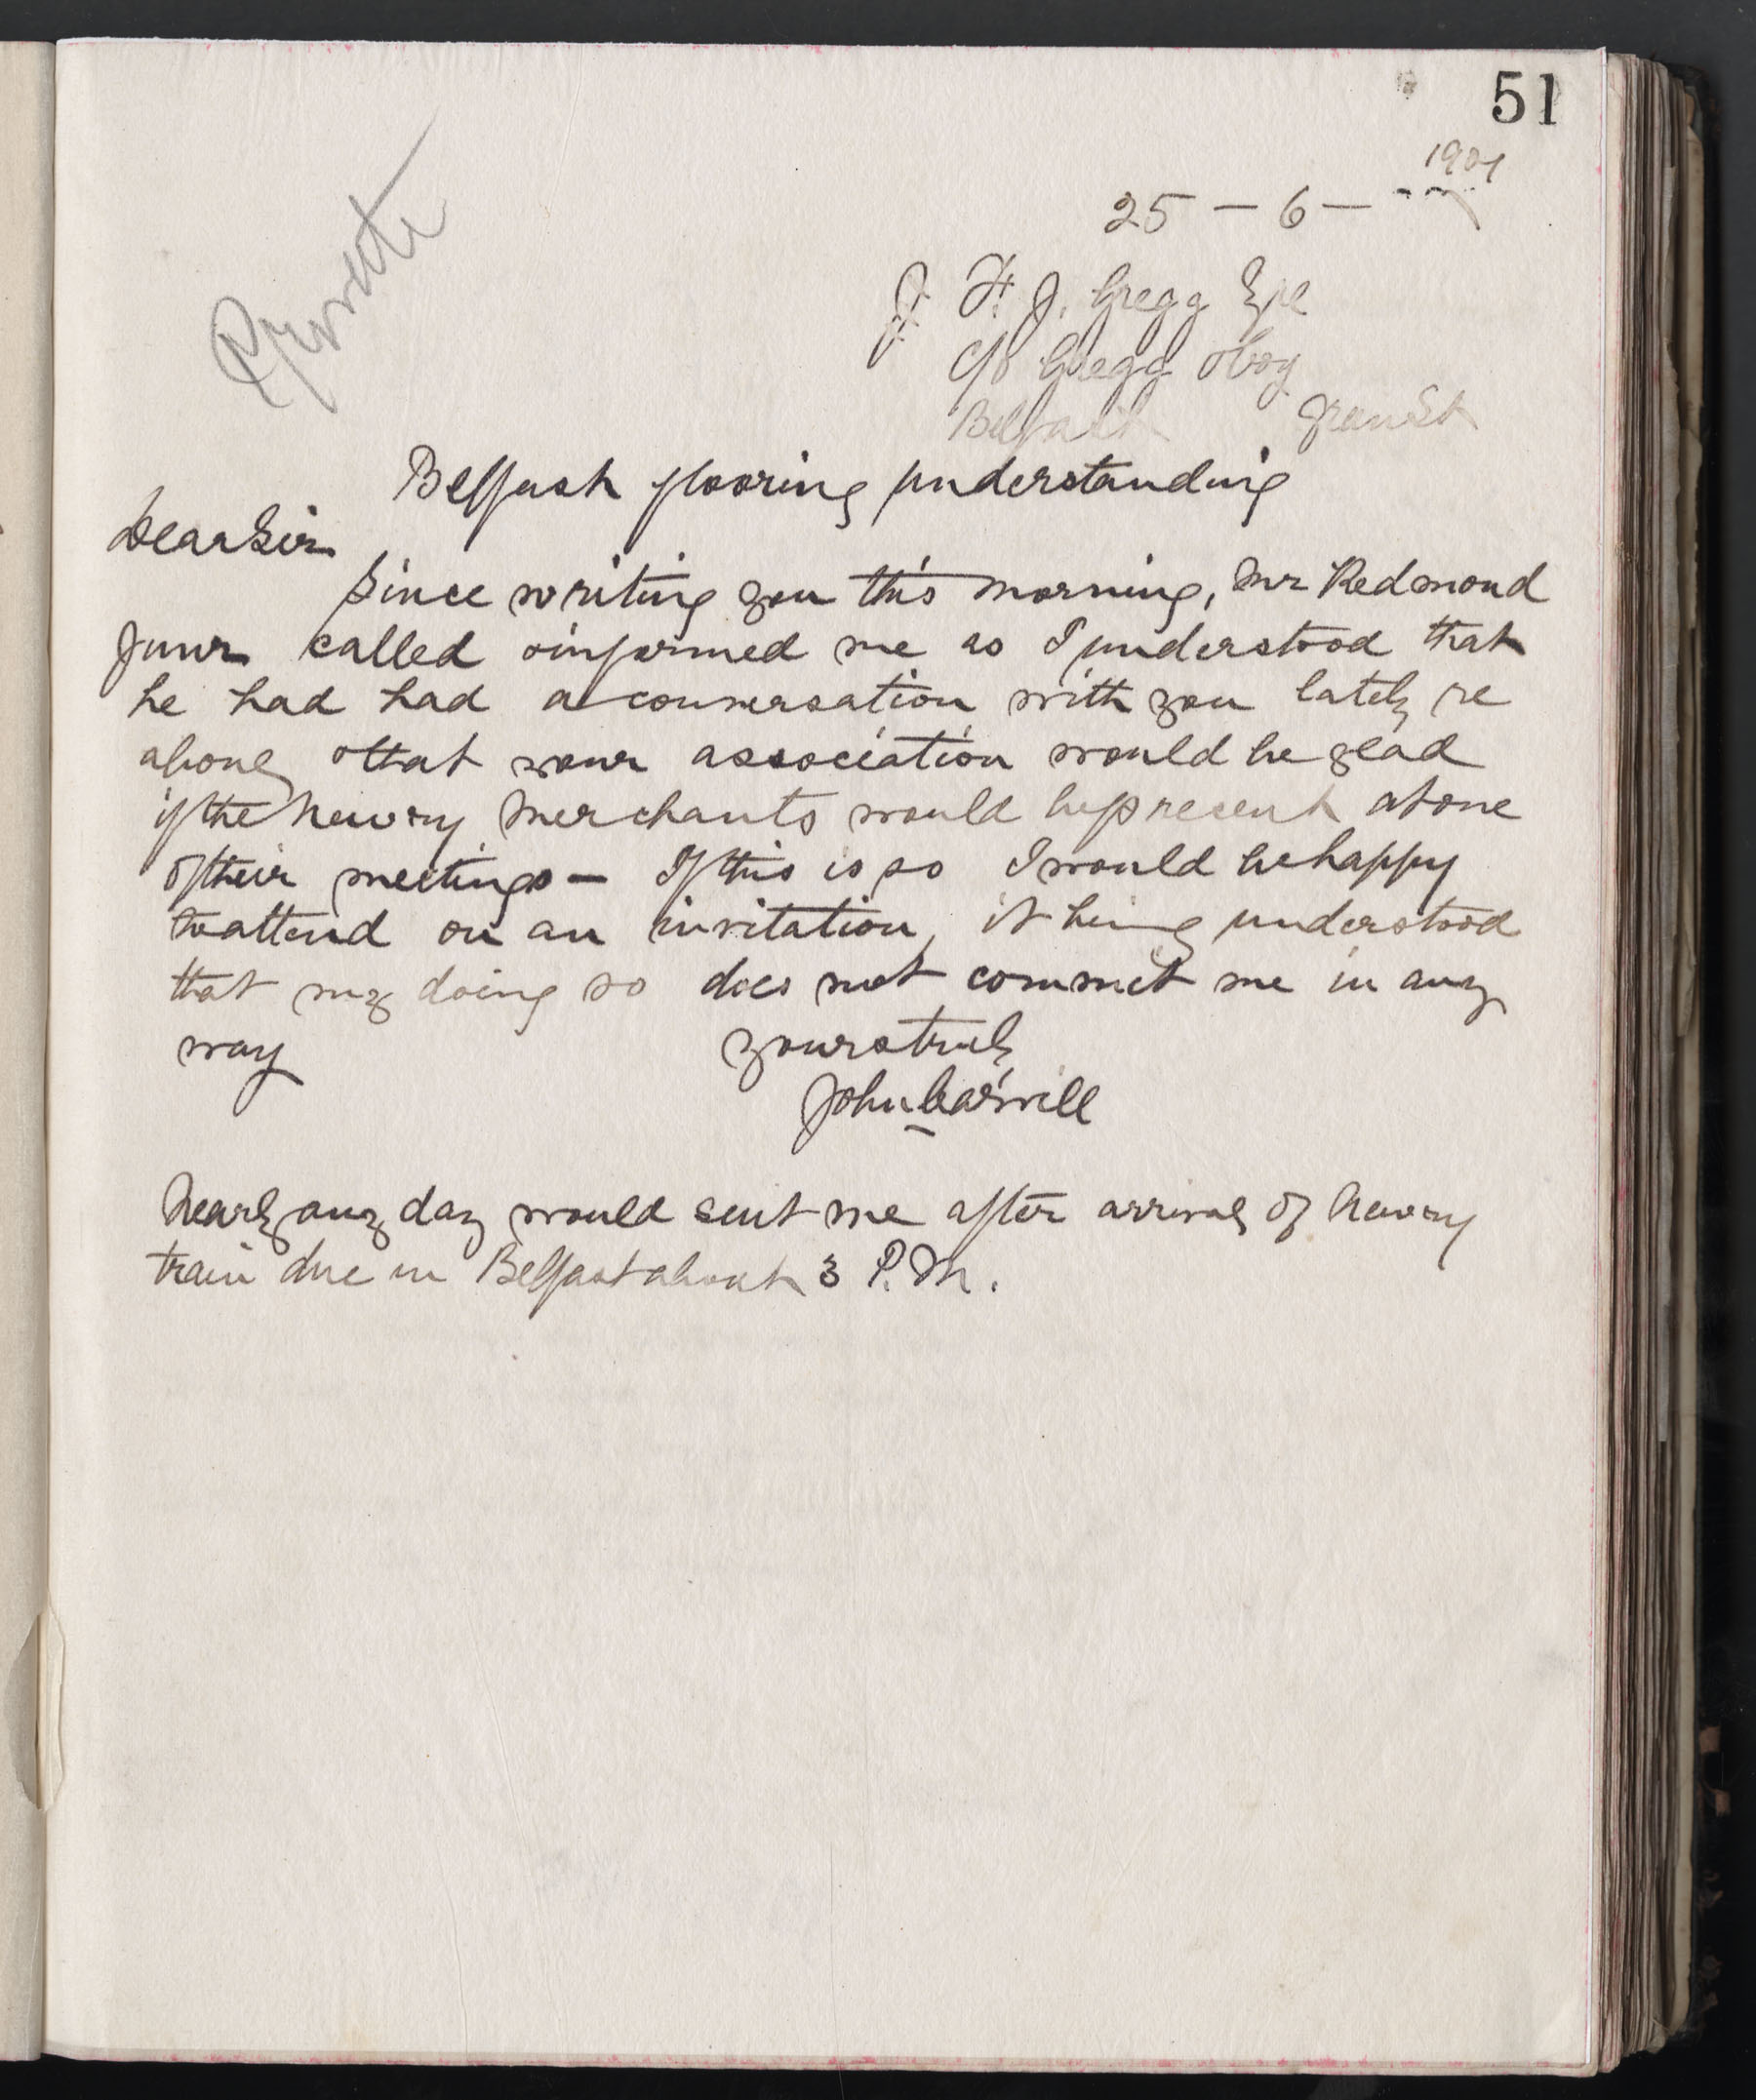 51
1904
25 - 6 -
Private
J. F. J. Gregg Esq
c/o Gregg & Boy
Belfast
Belfast flooring understanding
Dear Sir
Since writing you this morning, Mr Redmond
Junr called & informed me as I understood that
he had had a conversation with you lately re
above & that your association would be glad
if the Newry Merchants would be present at one
of their meetings - If this is so I would be happy
to attend on an invitation, it being understood
that my doing so does not commit me in any
way yours truly
John Carvill
Nearly any day would suit me after arrival of Newry
train due in Belfast about 3 P.M.